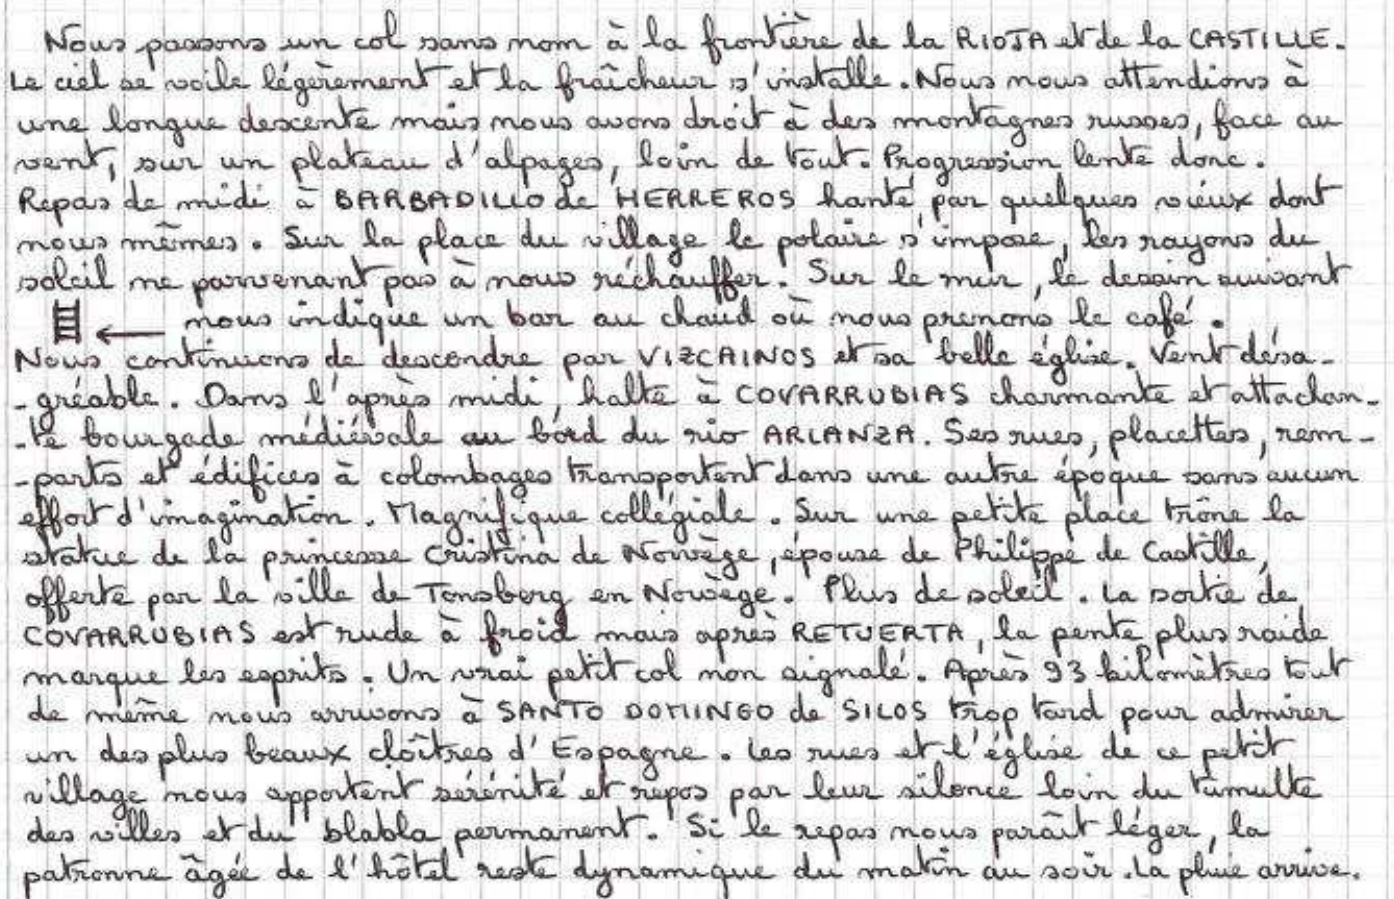 Nous passons un col sans nom à la frontière de la RIOJA et de la CASTILLE.
Le ciel se voile légèrement et la fraîcheur s'installe. Nous nous attendions à
une longue descente mais nous avons droit à des montagnes russes, face au
vent, sur un plateau d'alpages, loin de tout. Progression lente donc.
Repas de midi à BARBADILLO de HERREROS hanté par quelques vieux dont
nous mêmes. Sur la place du village le polaire s'impose, les rayons du
soleil ne parvenant pas à nous réchauffer. Sur le mur, le dessin suivant
nous indique un bar au chaud où nous prenons le café.
Nous continuons de descendre par VIZCAINOS et sa belle église. Vent désa-
-gréable. Dans l'après midi, halte à COVARRUBIAS charmante et attachan-
-te bourgade médiévale au bord du rio ARLANZA. Ses rues, placettes, rem-
-parts et édifices à colombages transportent dans une autre époque sans aucun
effort d'imagination. Magnifique collégiale. Sur une petite place trône la
statue de la princesse Cristina de Norvège, épouse de Philippe de Castille,
offerte par la ville de Tonsberg en Norvège. Plus de soleil. La sortie de
COVARRUBIAS est rude à froid mais après RETUERTA, la pente plus raide
marque les esprits. Un vrai petit col non signalé. Après 93 kilomètres tout
de même nous arrivons à SANTO DOMINGO de SILOS trop tard pour admirer
un des plus beaux cloîtres d'Espagne. Les rues et l'église de ce petit
village nous apportent sérénité et repos par leur silence loin du tumulte
des villes et du blabla permanent. Si le repas nous paraît léger, la
patronne âgée de l'hôtel reste dynamique du matin au soir. La pluie arrive.